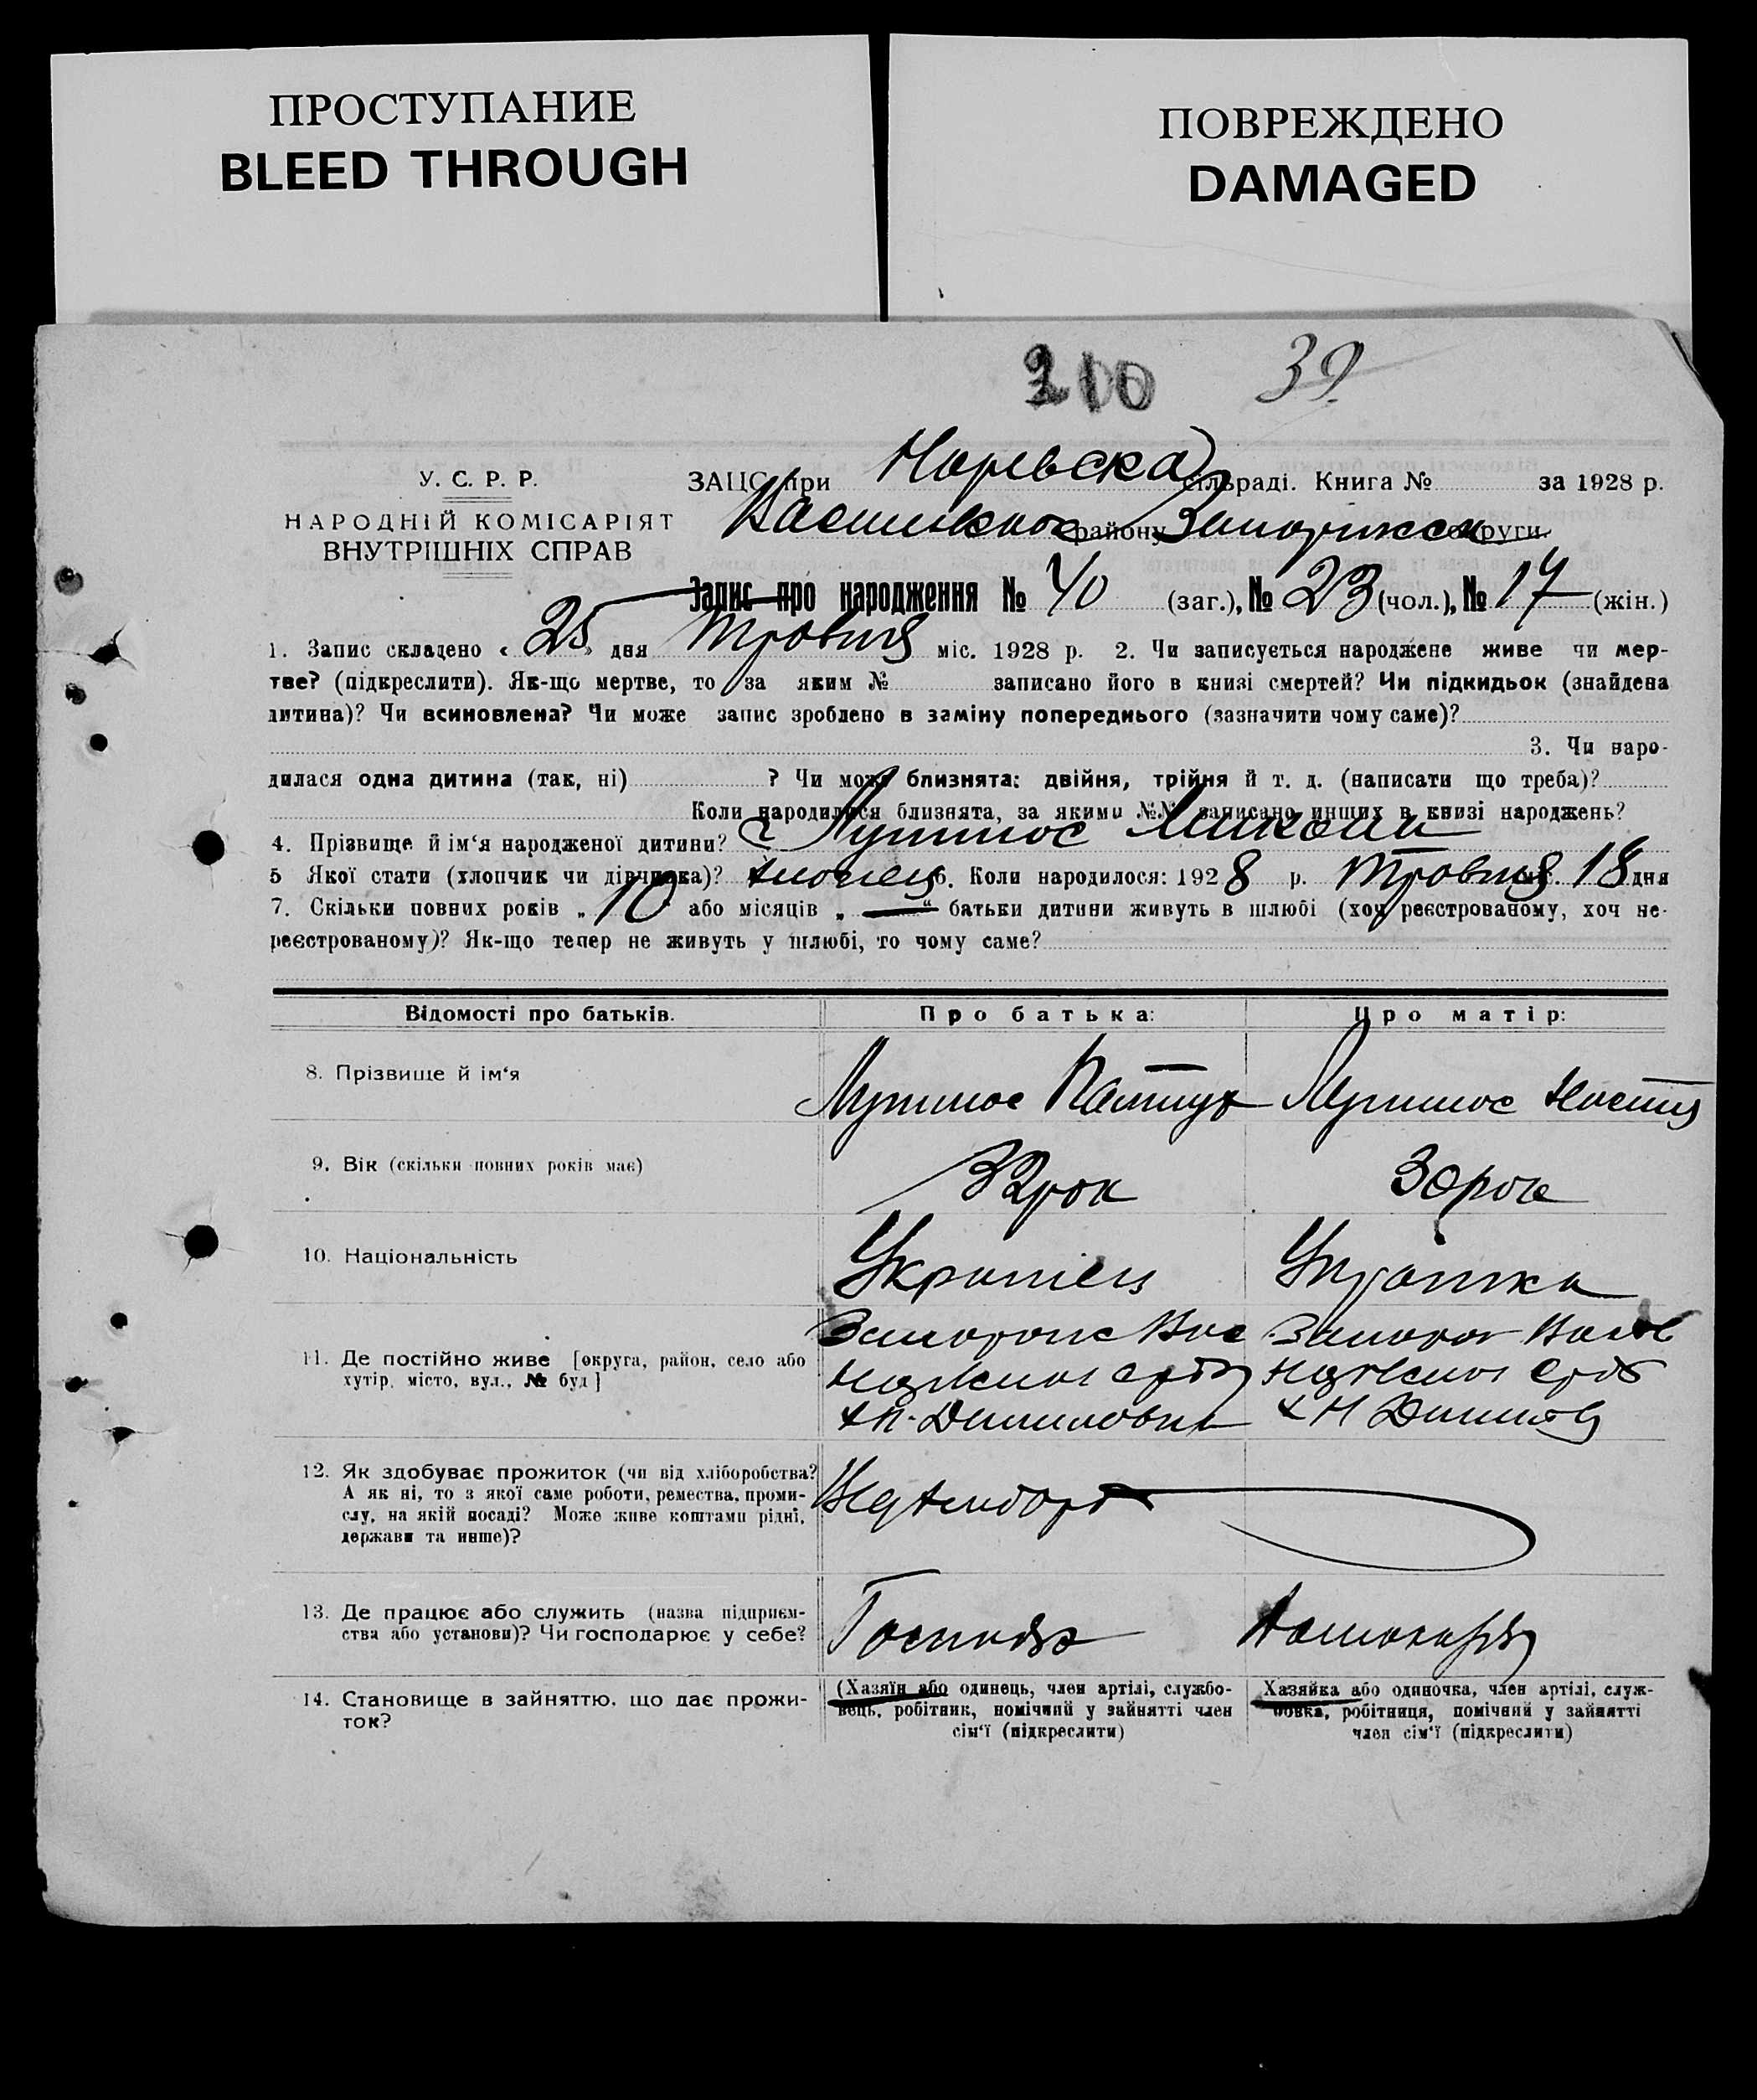 ПРОСТУПАНИЕ
BLEED THROUGH
ПОВРЕЖДЕНО
DAMAGED
210 39
У. С. Р. Р.
НАРОДНІЙ КОМІСАРІЯТ
ВНУТРІШНІХ СПРАВ
ЗАЦС при сільраді. Книга № за 1928 р.
району округи.
Запис про народження № 40 (заг.), № 23 (чол.), № 17 (жін.)
1. Запис складено « 25 » дня Травня міс. 1928 р. 2. Чи записується народжене живе чи мер-
тве? (підкреслити). Як-що мертве, то за яким № записано його в книзі смертей? Чи підкидьок (знайдена
дитина)? Чи всиновлена? Чи може запис зроблено в заміну попереднього (зазначити чому саме)?
3. Чи наро-
дилася одна дитина (так, ні) ? Чи може близнята: двійня, трійня й т. д. (написати що треба)?
Коли народилися близнята, за якими №№ записано инших в книзі народжень?
4. Прізвище й ім‘я народженої дитини?
5 Якої стати (хлопчик чи дівчинка)? хлопець 6. Коли народилося: 1928 р. Травня 18 дня
7. Скільки повних років „ 10 “ або місяців „ — “ батьки дитини живуть в шлюбі (хоч реєстрованому, хоч не-
реєстрованому)? Як-що тепер не живуть у шлюбі, то чому саме?
Відомості про батьків. Про батька: Про матір:
8. Прізвище й ім‘я
9. Вік (скільки повних років має) 32 рок 30 рок
10. Національність Українец Українка
11. Де постійно живе [округа, район, село або
хутір, місто, вул., № буд]
12. Як здобуває прожиток (чи від хліборобства?
А як ні, то з якої саме роботи, ремества, проми-
слу, на якій посаді? Може живе коштами рідні,
держави та инше)?
13. Де працює або служить (назва підприєм-
ства або установи)? Чи господарює у себе?
14. Становище в зайняттю, що дає прожи-
ток?
(Хазяїн або одинець, член артілі, службо-
вець, робітник, помічний у зайнятті член
сім‘ї (підкреслити)
Хазяйка або одиночка, член артілі, служ-
бовка, робітниця, помічний у зайнятті
член сім‘ї (підкреслити)